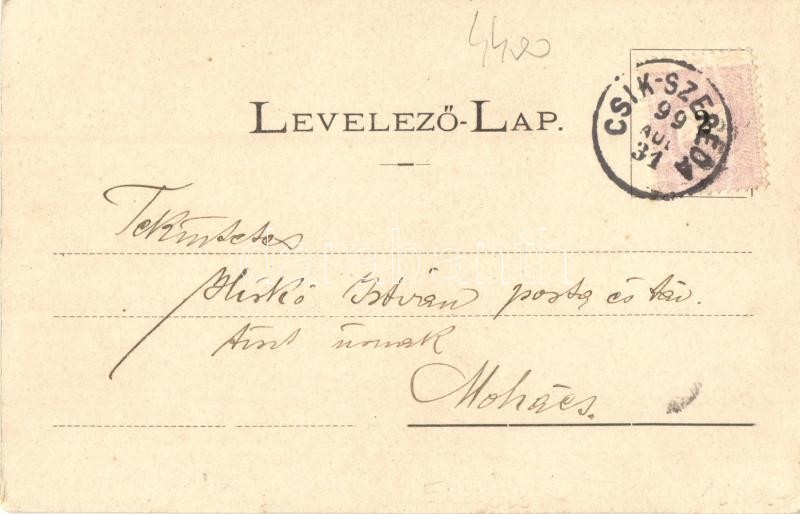 4420
LEVELEZŐ-LAP.
CSIK-SZEREDA
99
AUG
31
2
Tekintetes
Mirkó István posta és táv.
tiszt úrnak
Mohács.
darabanth